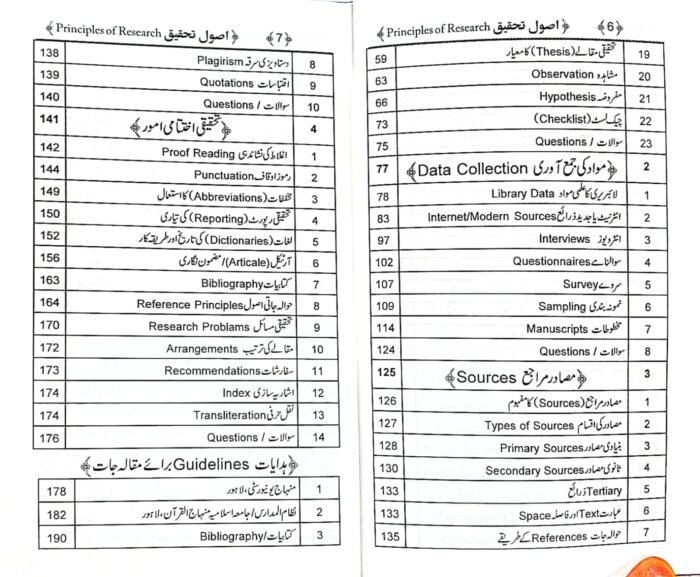 ﴿6﴾ ﴿اصول تحقیق Principles of Research﴾
19 تحقیقی مقالے (Thesis) کا معیار 59
20 مشاہدہ Observation 63
21 مفروضہ Hypothesis 66
22 چیک لسٹ (Checklist) 73
23 سوالات / Questions 75
2 ﴿مواد کی جمع آوری Data Collection﴾ 77
1 لائبریری کا علمی مواد Library Data 78
2 انٹرنیٹ یا جدید ذرائع Internet/Modern Sources 83
3 انٹرویوز Interviews 97
4 سوالنامے Questionnaires 102
5 سروے Survey 107
6 نمونہ بندی Sampling 109
7 مخطوطات Manuscripts 114
8 سوالات / Questions 124
3 ﴿مصادر مراجع Sources﴾ 125
1 مصادر مراجع (Sources) کا مفہوم 126
2 مصادر کی اقسام Types of Sources 127
3 بنیادی مصادر Primary Sources 128
4 ثانوی مصادر Secondary Sources 130
5 Tertiary ذرائع 133
6 عبارت Text اور فاصلہ Space 133
7 حوالہ جات References کے طریقے 135
﴿7﴾ ﴿اصول تحقیق Principles of Research﴾
8 دستاویزی سرقہ Plagirism 138
9 اقتباسات Quotations 139
10 سوالات / Questions 140
4 ﴿تحقیقی اختتامی امور﴾ 141
1 اغلاط کی نشاندہی Proof Reading 142
2 رموز اوقاف Punctuation 144
3 مخففات (Abbreviations) کا استعمال 149
4 تحقیقی رپورٹ (Reporting) کی تیاری 150
5 لغات (Dictionaries) کی تاریخ اور طریقہ کار 152
6 آرٹیکل (Articale) / مضمون نگاری 156
7 کتابیات Bibliography 163
8 حوالہ جاتی اصول Reference Principles 164
9 تحقیقی مسائل Research Problams 170
10 مقالے کی ترتیب Arrangements 172
11 سفارشات Recommendations 173
12 اشاریہ سازی Index 174
13 نقل حرفی Transliteration 174
14 سوالات / Questions 176
﴿ہدایات Guidelines برائے مقالہ جات﴾
1 منہاج یونیورسٹی، لاہور 178
2 نظام المدارس / جامعہ اسلامیہ منہاج القرآن، لاہور 182
3 کتابیات / Bibliography 190